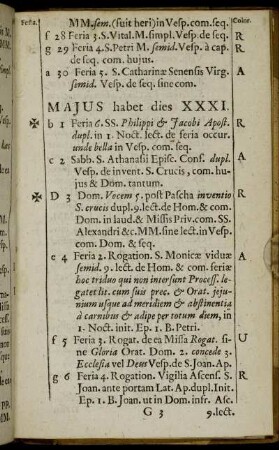 Festa.
Color.
MM. sem. (suit heri) in Vesp. com. seq.
f 28 Feria 3. S. Vital. M. simpl. Vesp. de seq. R
g 29 Feria 4. S. Petri M. semid. Vesp. à cap. R
de seq. com. hujus.
a 30 Feria 5. S. Catharinæ Senensis Virg. A
semid. Vesp. de seq. sine com.
MAJUS habet dies XXXI.
✠ b 1 Feria 6. SS. Philippi & Jacobi Apost. R
dupl. in 1. Noct. lect. de feria occur.
unde bella in Vesp. com. seq.
c 2 Sabb. S. Athanasii Episc. Conf. dupl. A
Vesp. de invent. S. Crucis, com. hu-
jus & Dom. tantum.
✠ D 3 Dom. Vocem 5. post Pascha inventio R
S. crucis dupl. 9. lect. de Hom. & com.
Dom. in laud. & Missis Priv. com. SS.
Alexandri & c. MM. sine lect. in Vesp.
com. Dom. & seq.
e 4 Feria 2. Rogation. S. Monicæ viduæ A
semid. 9. lect. de Hom. & com. feriæ
hoc triduo qui non intersunt Process. le-
gat et lit. cum suis prec. & Orat. jeju-
nium usque ad meridiem & abstinentia
à carnibus & adipe per totum diem, in
1. Noct. init. Ep. 1. B. Petri.
f 5 Feria 3. Rogat. de ea Missa Rogat. si- U
ne Gloria Orat. Dom. 2. concede 3.
Ecclesiæ vel Deus Vesp. de S. Joan. Ap.
g 6 Feria 4. Rogation. Vigilia Ascens. S. R
Joan. ante portam Lat. Ap. dupl. Init.
Ep. 1. B. Joan. ut in Dom. infr. Asc.
G 3 9. lect.